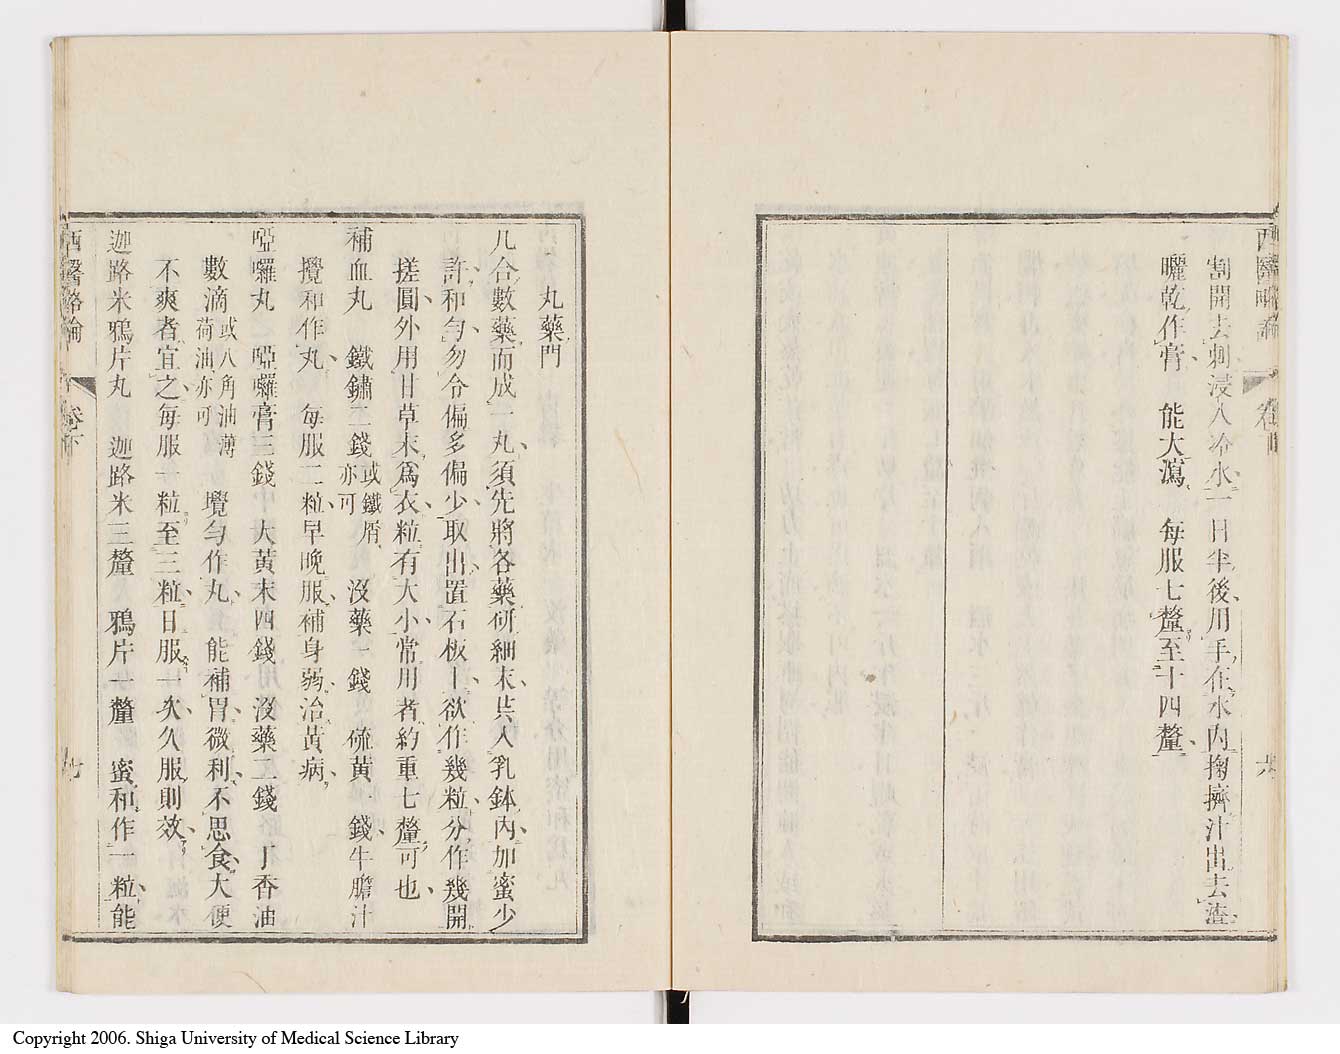 西醫略論
卷下
割開去刺浸入冷水一日半後用手在水內搊擠汁出去渣
曬乾作膏　能大瀉　每服七釐至十四釐
丸藥門
凡合數藥而成一丸須先將各藥研細末共入乳鉢內加蜜少
許和勻勿令偏多偏少取出置石板上欲作幾粒分作幾開
搓圓外用甘草末爲衣粒有大小常用者約重七釐可也
補血丸　鐵鏽二錢或鐵屑亦可　沒藥一錢　硫黃一錢牛膽汁
攪和作丸　每服二粒早晚服補身弱治黃病
啞囉丸　啞囉膏三錢　大黃末四錢　沒藥二錢　丁香油
數滴或八角油薄荷油亦可　攪勻作丸　能補胃微利不思食大便
不爽者宜之每服一粒至三粒日服一次久服則效
迦路米鴉片丸　迦路米三釐　鴉片一釐　蜜和作一粒能
西醫略論
卷下
Copyright 2006. Shiga University of Medical Science Library